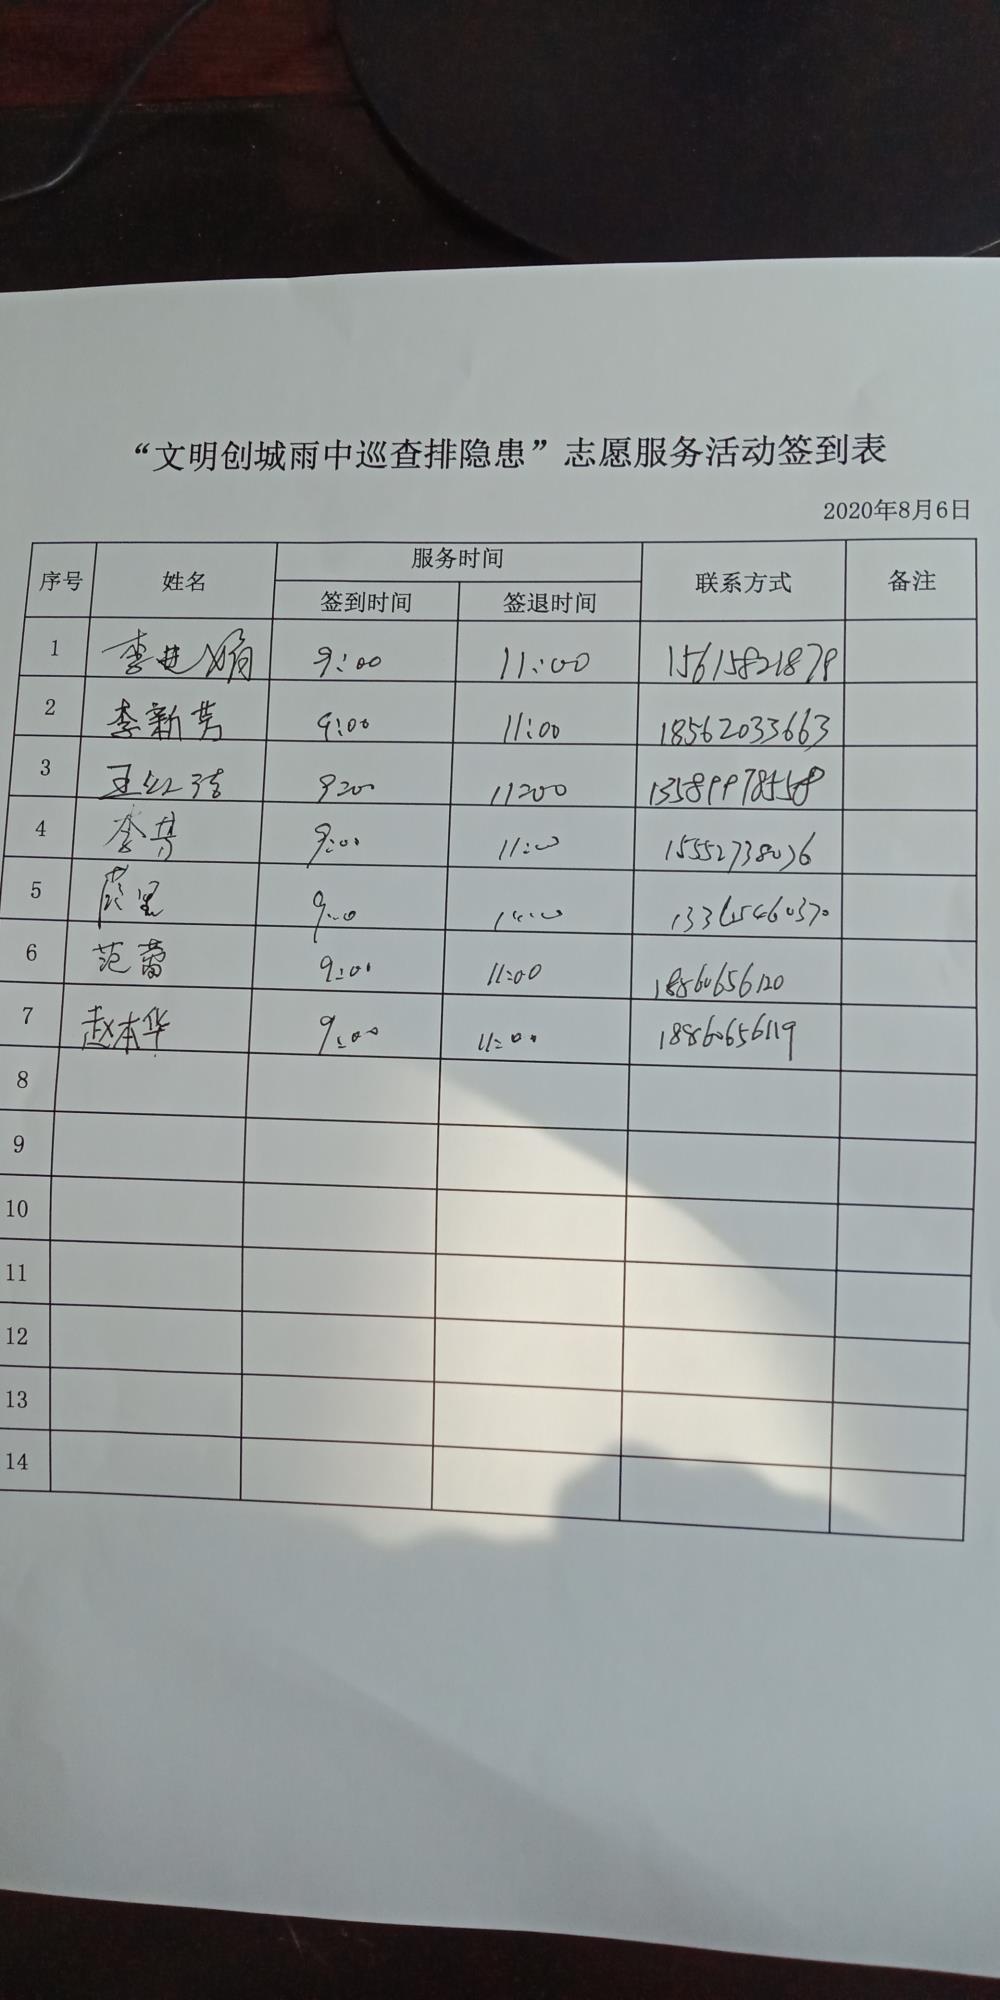 “文明创城雨中巡查排隐患”志愿服务活动签到表
2020年8月6日
序号 姓名 服务时间 联系方式 备注
签到时间 签退时间
1 李进娟 9:00 11:00 15615821879
2 李新芳 9:00 11:00 18562033663
3 王红洁 9:00 11:00 13589978558
4 李芳 9:00 11:00 15552738036
5 9:00 11:00 133615460370
6 范蕾 9:00 11:00 18860656120
7 赵本华 9:00 11:00 18860656119
8
9
10
11
12
13
14